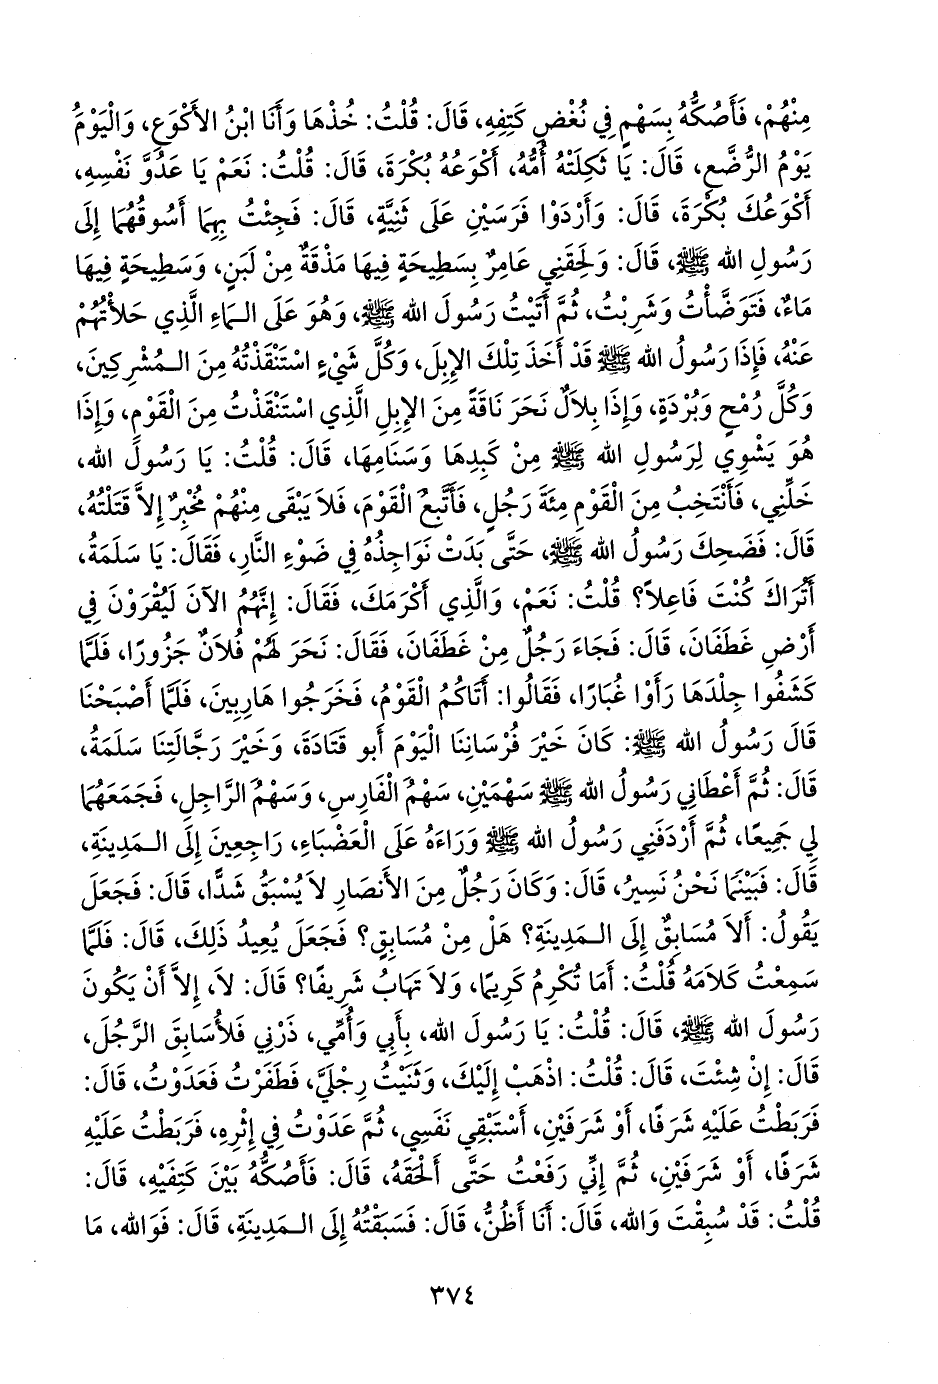 مِنْهُمْ، فَأَصُكُّهُ بِسَهْمٍ فِي نُغْضِ كَتِفِهِ، قَالَ: قُلْتُ: خُذْهَا وَأَنَا ابْنُ الأَكْوَعِ، وَالْيَوْمُ
يَوْمُ الرُّضَّعِ، قَالَ: يَا ثَكِلَتْهُ أُمُّهُ، أَكْوَعُهُ بُكْرَةَ، قَالَ: قُلْتُ: نَعَمْ يَا عَدُوَّ نَفْسِهِ،
أَكْوَعُكَ بُكْرَةَ، قَالَ: وَأَرْدَوْا فَرَسَيْنِ عَلَى ثَنِيَّةٍ، قَالَ: فَجِئْتُ بِهِمَا أَسُوقُهُمَا إِلَى
رَسُولِ الله ﷺ، قَالَ: وَلَحِقَنِي عَامِرٌ بِسَطِيحَةٍ فِيهَا مَذْقَةٌ مِنْ لَبَنٍ، وَسَطِيحَةٍ فِيهَا
مَاءٌ، فَتَوَضَّأْتُ وَشَرِبْتُ، ثُمَّ أَتَيْتُ رَسُولَ الله ﷺ، وَهُوَ عَلَى الـمَاءِ الَّذِي حَلأْتُهُمْ
عَنْهُ، فَإِذَا رَسُولُ الله ﷺ قَدْ أَخَذَ تِلْكَ الإِبِلَ، وَكُلَّ شَيْءٍ اسْتَنْقَذْتُهُ مِنَ الـمُشْرِكِينَ،
وَكُلَّ رُمْحٍ وَبُرْدَةٍ، وَإِذَا بِلاَلٌ نَحَرَ نَاقَةً مِنَ الإِبِلِ الَّذِي اسْتَنْقَذْتُ مِنَ الْقَوْمِ، وَإِذَا
هُوَ يَشْوِي لِرَسُولِ الله ﷺ مِنْ كَبِدِهَا وَسَنَامِهَا، قَالَ: قُلْتُ: يَا رَسُولَ الله،
خَلِّنِي، فَأَنْتَخِبُ مِنَ الْقَوْمِ مِئَةَ رَجُلٍ، فَأَتَّبِعُ الْقَوْمَ، فَلاَ يَبْقَى مِنْهُمْ مُخْبِرٌ إِلاَّ قَتَلْتُهُ،
قَالَ: فَضَحِكَ رَسُولُ الله ﷺ، حَتَّى بَدَتْ نَوَاجِذُهُ فِي ضَوْءِ النَّارِ، فَقَالَ: يَا سَلَمَةُ،
أَتُرَاكَ كُنْتَ فَاعِلاً؟ قُلْتُ: نَعَمْ، وَالَّذِي أَكْرَمَكَ، فَقَالَ: إِنَّهُمُ الآنَ لَيُقْرَوْنَ فِي
أَرْضِ غَطَفَانَ، قَالَ: فَجَاءَ رَجُلٌ مِنْ غَطَفَانَ، فَقَالَ: نَحَرَ لَهُمْ فُلاَنٌ جَزُورًا، فَلَمَّا
كَشَفُوا جِلْدَهَا رَأَوْا غُبَارًا، فَقَالُوا: أَتَاكُمُ الْقَوْمُ، فَخَرَجُوا هَارِبِينَ، فَلَمَّا أَصْبَحْنَا
قَالَ رَسُولُ الله ﷺ: كَانَ خَيْرَ فُرْسَانِنَا الْيَوْمَ أَبو قَتَادَةَ، وَخَيْرَ رَجَّالَتِنَا سَلَمَةُ،
قَالَ: ثُمَّ أَعْطَانِي رَسُولُ الله ﷺ سَهْمَيْنِ، سَهْمُ الْفَارِسِ، وَسَهْمُ الرَّاجِلِ، فَجَمَعَهُمَا
لِي جَمِيعًا، ثُمَّ أَرْدَفَنِي رَسُولُ الله ﷺ وَرَاءَهُ عَلَى الْعَضْبَاءِ، رَاجِعِينَ إِلَى الـمَدِينَةِ،
قَالَ: فَبَيْنَمَا نَحْنُ نَسِيرُ، قَالَ: وَكَانَ رَجُلٌ مِنَ الأَنصَارِ لاَ يُسْبَقُ شَدًّا، قَالَ: فَجَعَلَ
يَقُولُ: أَلاَ مُسَابِقٌ إِلَى الـمَدِينَةِ؟ هَلْ مِنْ مُسَابِقٍ؟ فَجَعَلَ يُعِيدُ ذَلِكَ، قَالَ: فَلَمَّا
سَمِعْتُ كَلاَمَهُ قُلْتُ: أَمَا تُكْرِمُ كَرِيمًا، وَلاَ تَهَابُ شَرِيفًا؟ قَالَ: لاَ، إِلاَّ أَنْ يَكُونَ
رَسُولَ الله ﷺ، قَالَ: قُلْتُ: يَا رَسُولَ الله، بِأَبِي وَأُمِّي، ذَرْنِي فَلأُسَابِقَ الرَّجُلَ،
قَالَ: إِنْ شِئْتَ، قَالَ: قُلْتُ: اذْهَبْ إِلَيْكَ، وَثَنَيْتُ رِجْلَيَّ، فَطَفَرْتُ فَعَدَوْتُ، قَالَ:
فَرَبَطْتُ عَلَيْهِ شَرَفًا، أَوْ شَرَفَيْنِ، أَسْتَبْقِي نَفَسِي، ثُمَّ عَدَوْتُ فِي إِثْرِهِ، فَرَبَطْتُ عَلَيْهِ
شَرَفًا، أَوْ شَرَفَيْنِ، ثُمَّ إِنِّي رَفَعْتُ حَتَّى أَلْحَقَهُ، قَالَ: فَأَصُكُّهُ بَيْنَ كَتِفَيْهِ، قَالَ:
قُلْتُ: قَدْ سُبِقْتَ وَالله، قَالَ: أَنَا أَظُنُّ، قَالَ: فَسَبَقْتُهُ إِلَى الـمَدِينَةِ، قَالَ: فَوَالله، مَا
٣٧٤